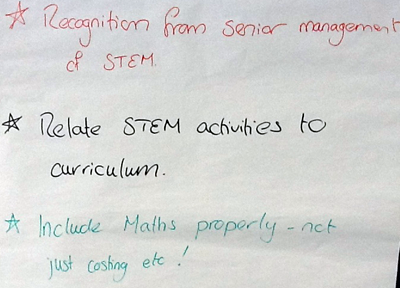 ☆ Recognition from senior management
of STEM.
☆ Relate STEM activities to
curriculum.
☆ Include Maths properly - not
just costing etc!